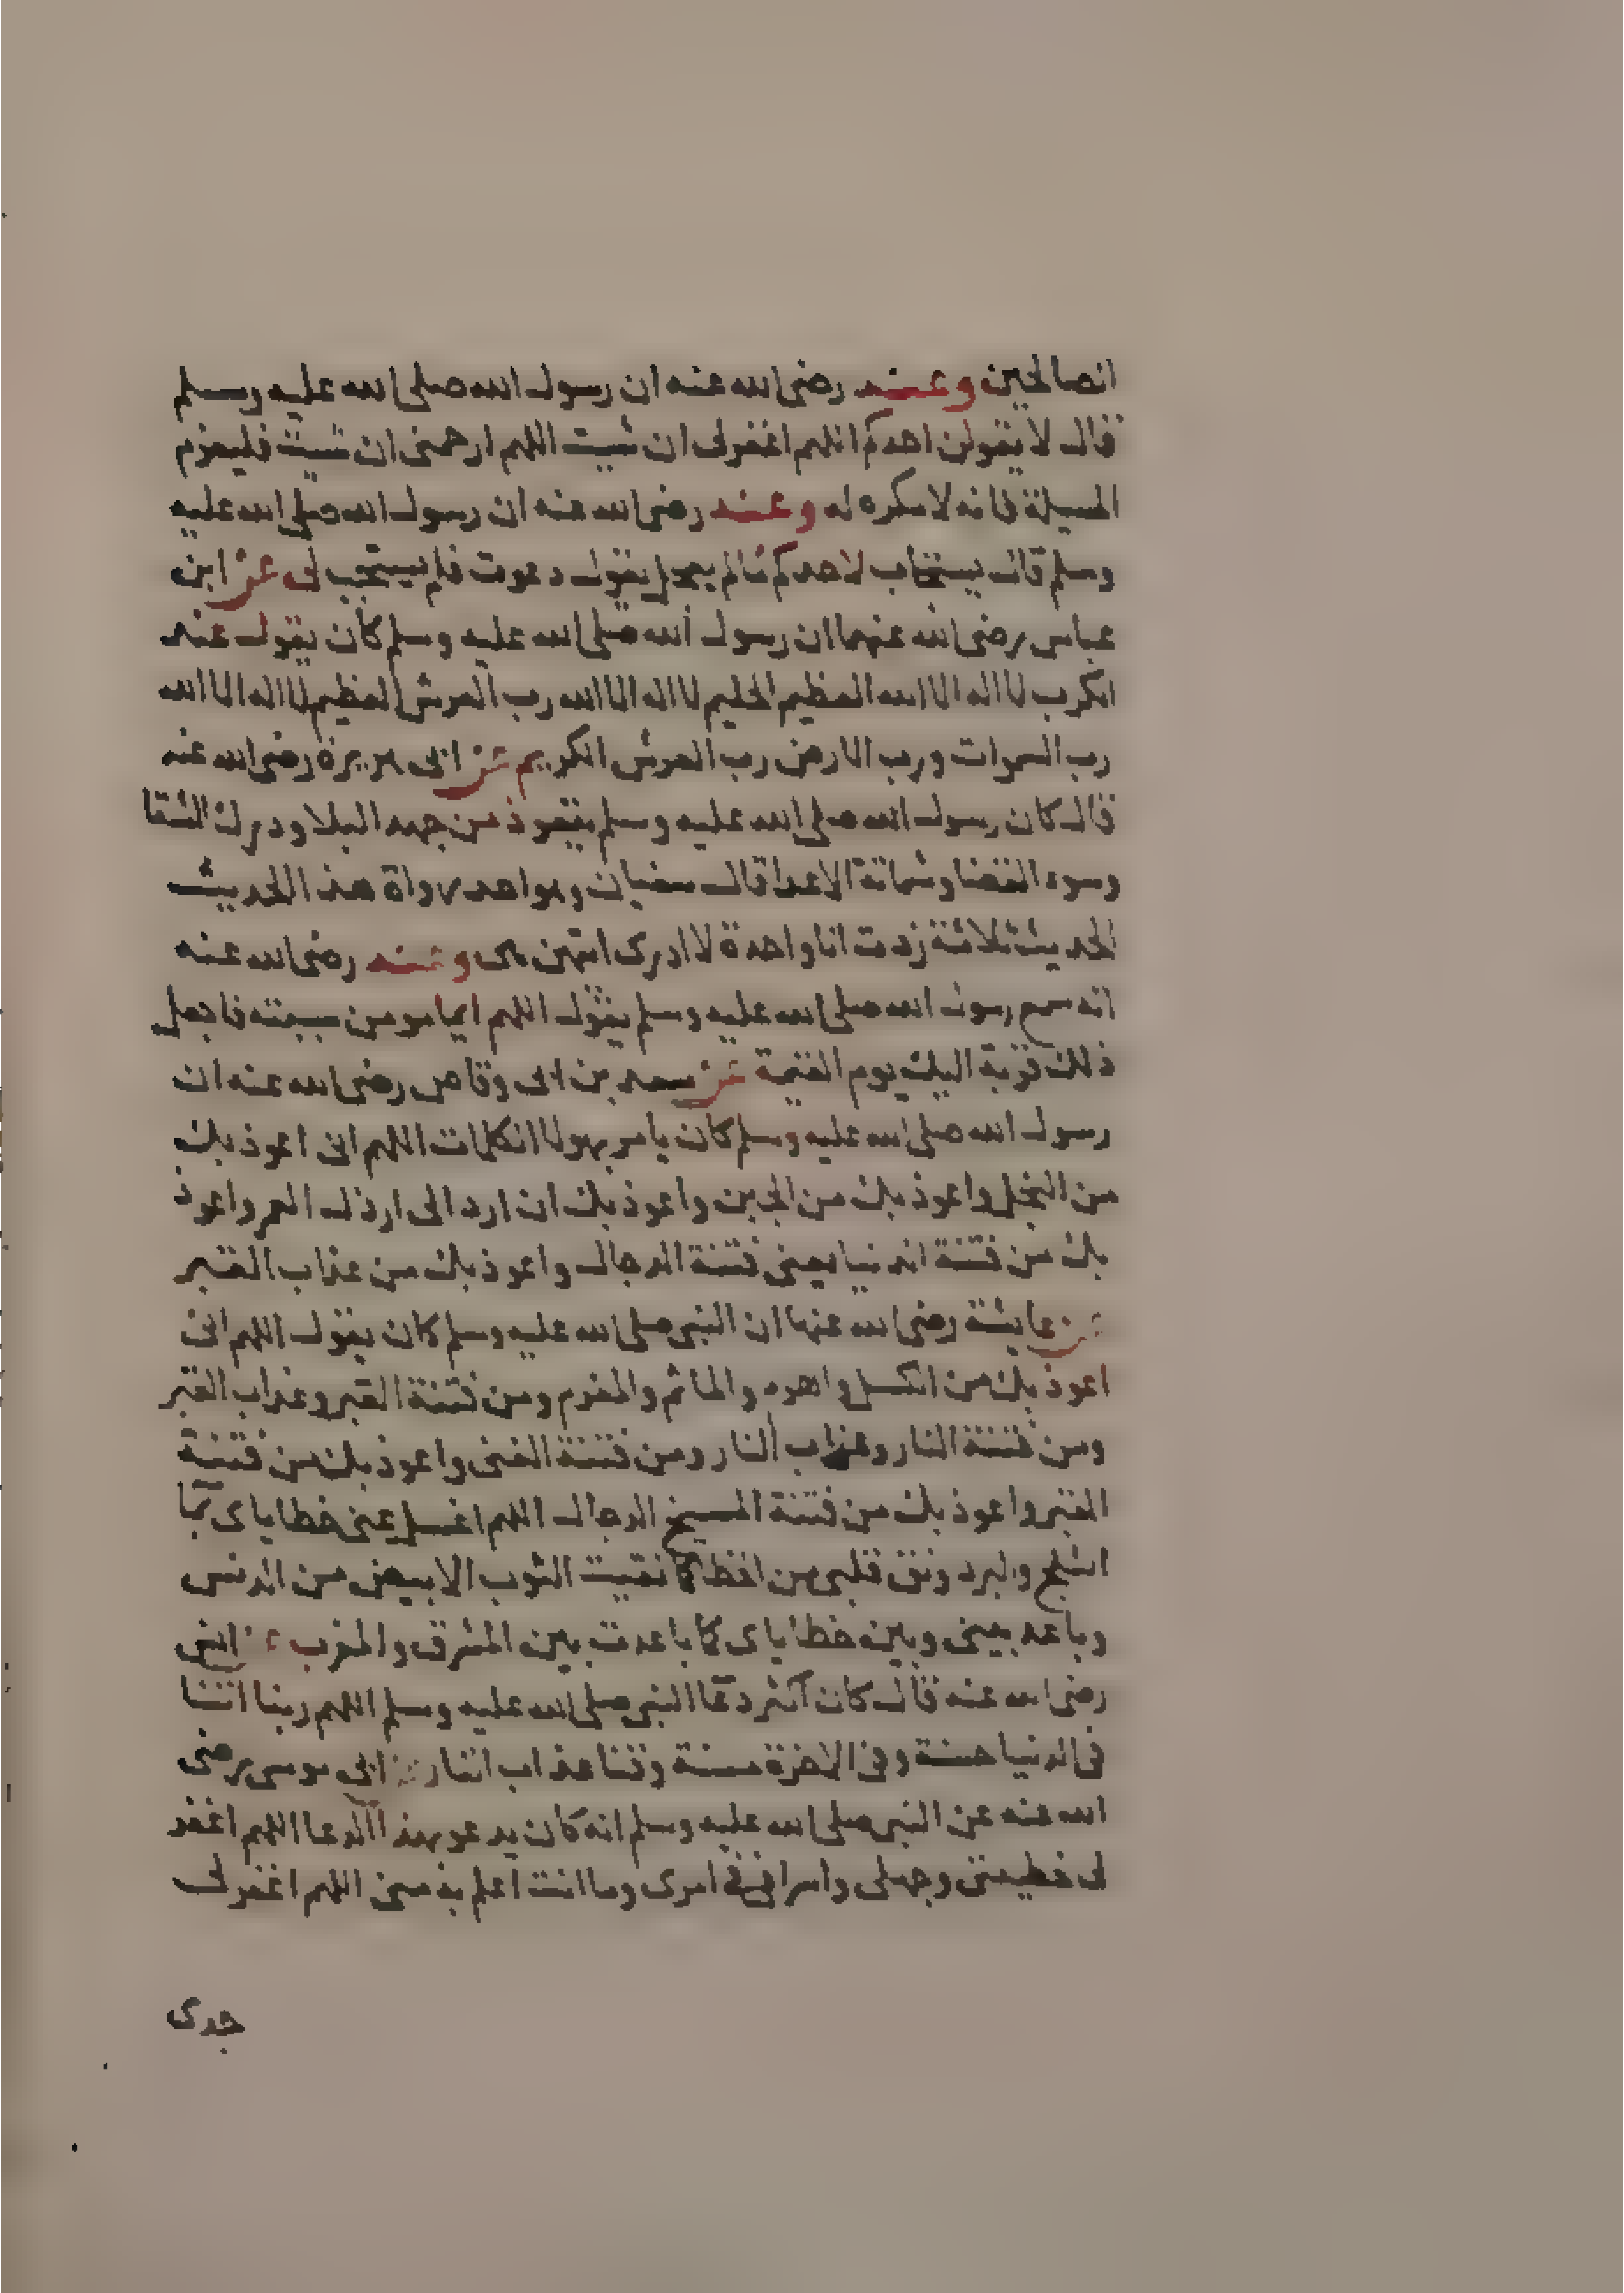 الصالحين وعنه رضى الله عنه ان رسول الله صلى الله عليه وسلم
قال لا يقولن احدكم اللهم اغفرلى ان شيت اللهم ارحمنى ان شيت فليعزم
المسيلة فانه لا مكره له وعنه رضى الله عنه ان رسول الله صلى الله عليه
وسلم قال يستجاب لاحدكم مالم يعجل يقول دعوت فلم يستجب لى عن ابن
عباس رضى الله عنهما ان رسول الله صلى الله عليه وسلم كان يقول عند
الكرب لا اله الا الله العظيم الحليم لا اله الا الله رب العرش العظيم لا اله الا الله
رب السموات ورب الارض رب العرش الكريم عن ابى هريرة رضى الله عنه
قال كان رسول الله صلى الله عليه وسلم يتعوذ من جهد البلا ودرك الشقا
وسوء القضا وشماتة الاعدا قال سفيان وهو احد رواة هذا الحديث
الحديث ثلاثة زدت انا واحدة لا ادرى ايتهن هى وعنه رضى الله عنه
انه سمع رسول الله صلى الله عليه وسلم يقول اللهم ايما مومن سببته فاجعل
ذلك قربة اليك يوم القيمة عن سعد بن ابى وقاص رضى الله عنه ان
رسول الله صلى الله عليه وسلم كان يامر بهولا الكلمات اللهم انى اعوذ بك
من البخل واعوذ بك من الجبن واعوذ بك ان ارد الى ارذل العمر واعوذ
بك من فتنة الدنيا يعنى فتنة الدجال واعوذ بك من عذاب القبر
عن عايشة رضى الله عنها ان النبى صلى الله عليه وسلم كان يقول اللهم انى
اعوذ بك من الكسل والهرم والماثم والمغرم ومن فتنة القبر وعذاب القبر
ومن فتنة النار وعذاب النار ومن فتنة الغنى واعوذ بك من فتنة
الفقر واعوذ بك من فتنة المسيح الدجال اللهم اغسل عنى خطاياى بما
الثلج والبرد ونق قلبى من الخطا كما نقيت الثوب الابيض من الدنس
وباعد بينى وبين خطاياى كما باعدت بين المشرق والمغرب عن انس
رضى الله عنه قال كان اكثر دعا النبى صلى الله عليه وسلم اللهم ربنا اتنا
فى الدنيا حسنة وفى الاخرة حسنة وقنا عذاب النار عن ابى موسى رضى
الله عنه عن النبى صلى الله عليه وسلم انه كان يدعو بهذا الدعا اللهم اغفر
لى خطيئتى وجهلى واسرافى فى امرى وما انت اعلم به منى اللهم اغفرلى
جدى